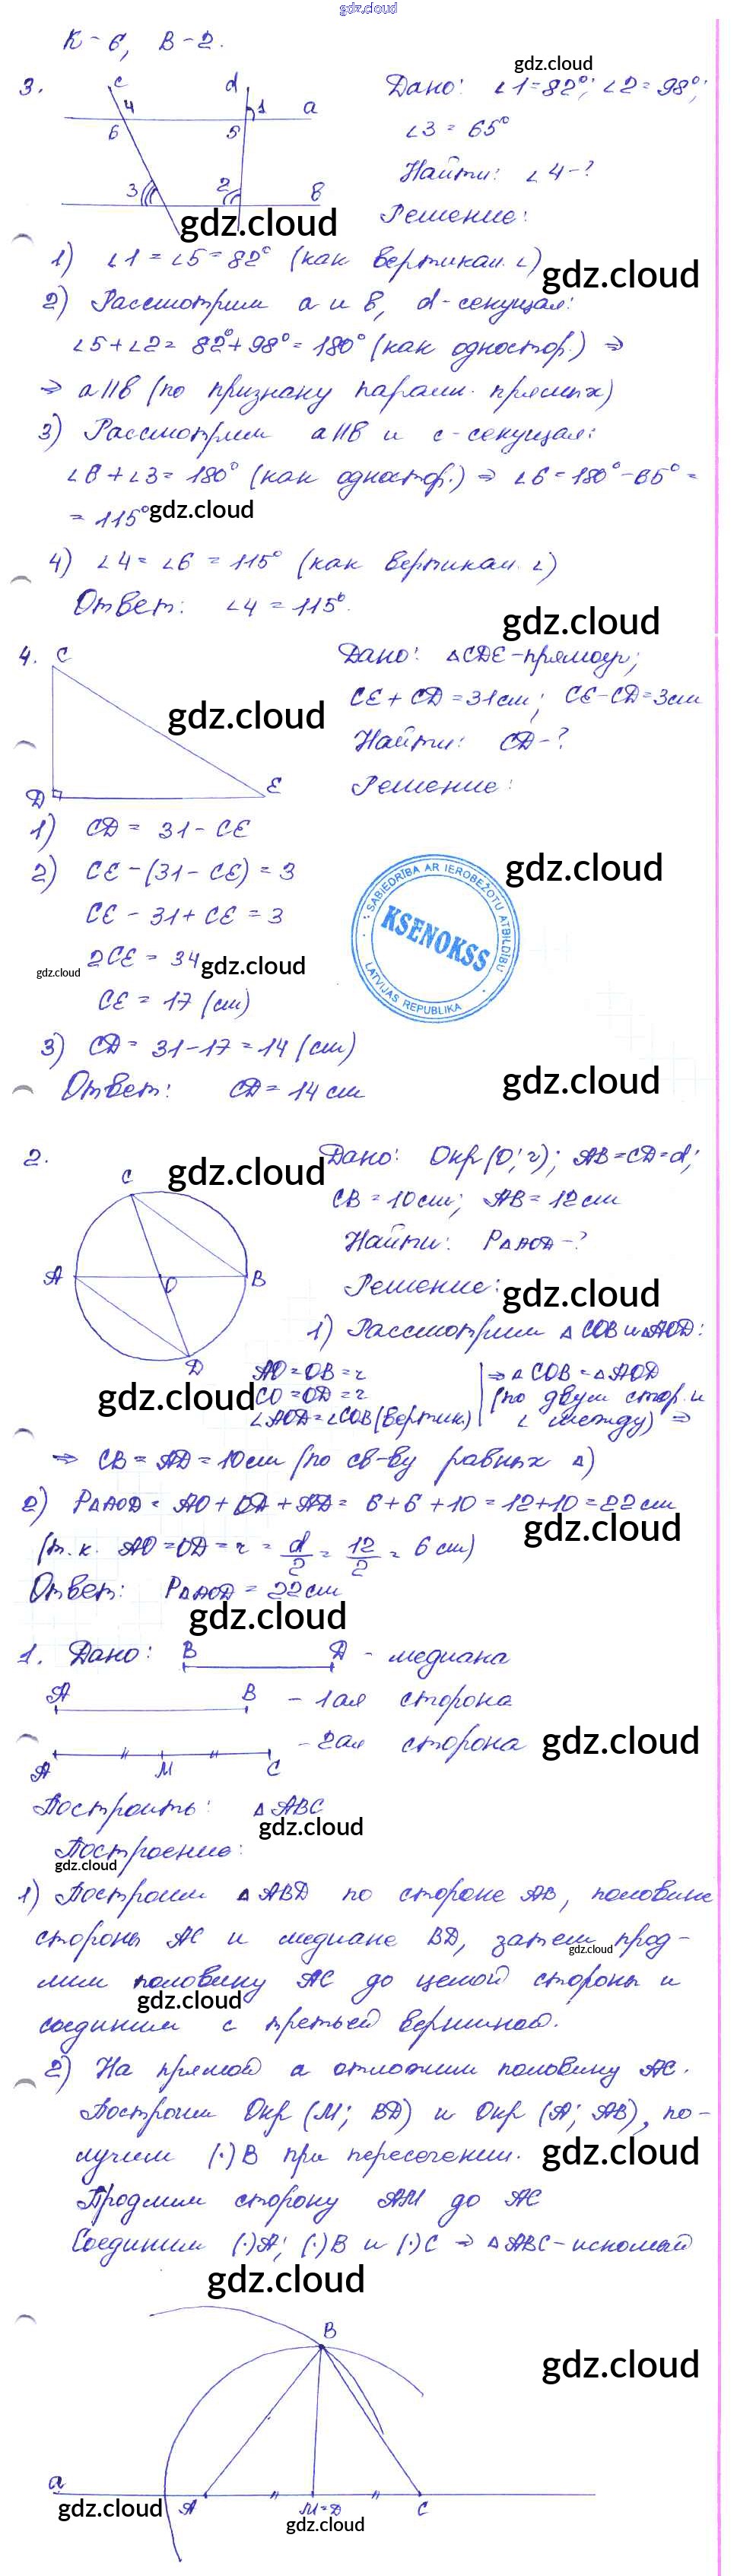 gdz.cloud
К-6, В-2.
3.
c
d
4
1
a
6
5
3
2
в
Дано: ∠1=82°; ∠2=98°;
gdz.cloud
∠3=65°
Найти: ∠4-?
Решение:
gdz.cloud
1) ∠1=∠5=82° (как вертикал. ∠)
gdz.cloud
2) Рассмотрим a и в, d-секущая:
∠5+∠2=82°+98°=180° (как одностор.) ⇒
⇒ a∥в (по признаку паралл. прямых)
3) Рассмотрим a∥в и c-секущая:
∠6+∠3=180° (как одностор.) ⇒ ∠6=180°-65°=
=115°
gdz.cloud
4) ∠4=∠6=115° (как вертикал. ∠)
Ответ: ∠4=115°.
gdz.cloud
4.
C
D
E
gdz.cloud
Дано: △CDE-прямоуг;
CE+CD=31см; CE-CD=3см
Найти: CD-?
Решение:
1) CD=31-CE
2) CE-(31-CE)=3
gdz.cloud
CE-31+CE=3
2CE=34
gdz.cloud
gdz.cloud
CE=17 (см)
SABIEDRĪBA AR IEROBEŽOTU ATBILDĪBU
KSENOKSS
LATVIJAS REPUBLIKA
3) CD=31-17=14 (см)
gdz.cloud
Ответ: CD=14см
2.
C
A
O
B
D
gdz.cloud
Дано: Окр(O;r); AB=CD=d;
CB=10см; AB=12см
Найти: P△AOD-?
Решение:
gdz.cloud
1) Рассмотрим △COB и △AOD:
AO=OB=r
CO=OD=r
∠AOD=∠COB(вертик)
⇒△COB=△AOD
(по двум стор. и
∠ между) ⇒
gdz.cloud
⇒ CB=AD=10см (по св-ву равных △)
2) P△AOD=AO+OD+AD=6+6+10=12+10=22см
gdz.cloud
(т.к. AO=OD=r=d/2=12/2=6см)
Ответ: P△AOD=22см
gdz.cloud
1. Дано: B D - медиана
A B - 1ая сторона
A M C - 2ая сторона
gdz.cloud
Построить: △ABC
gdz.cloud
Построение:
gdz.cloud
1) Построим △ABD по стороне AB, половине
стороны AC и медиане BD, затем прод-
gdz.cloud
лим половину AC до целой стороны и
gdz.cloud
соединим с третьей вершиной.
2) На прямой a отложим половину AC.
Построим Окр(M; BD) и Окр(A; AB), по-
лучим (·)B при пересечении.
gdz.cloud
Продлим сторону AM до AC
Соединим (·)A; (·)B и (·)C ⇒ △ABC-искомый
gdz.cloud
B
gdz.cloud
a
A
M=D
C
gdz.cloud
gdz.cloud